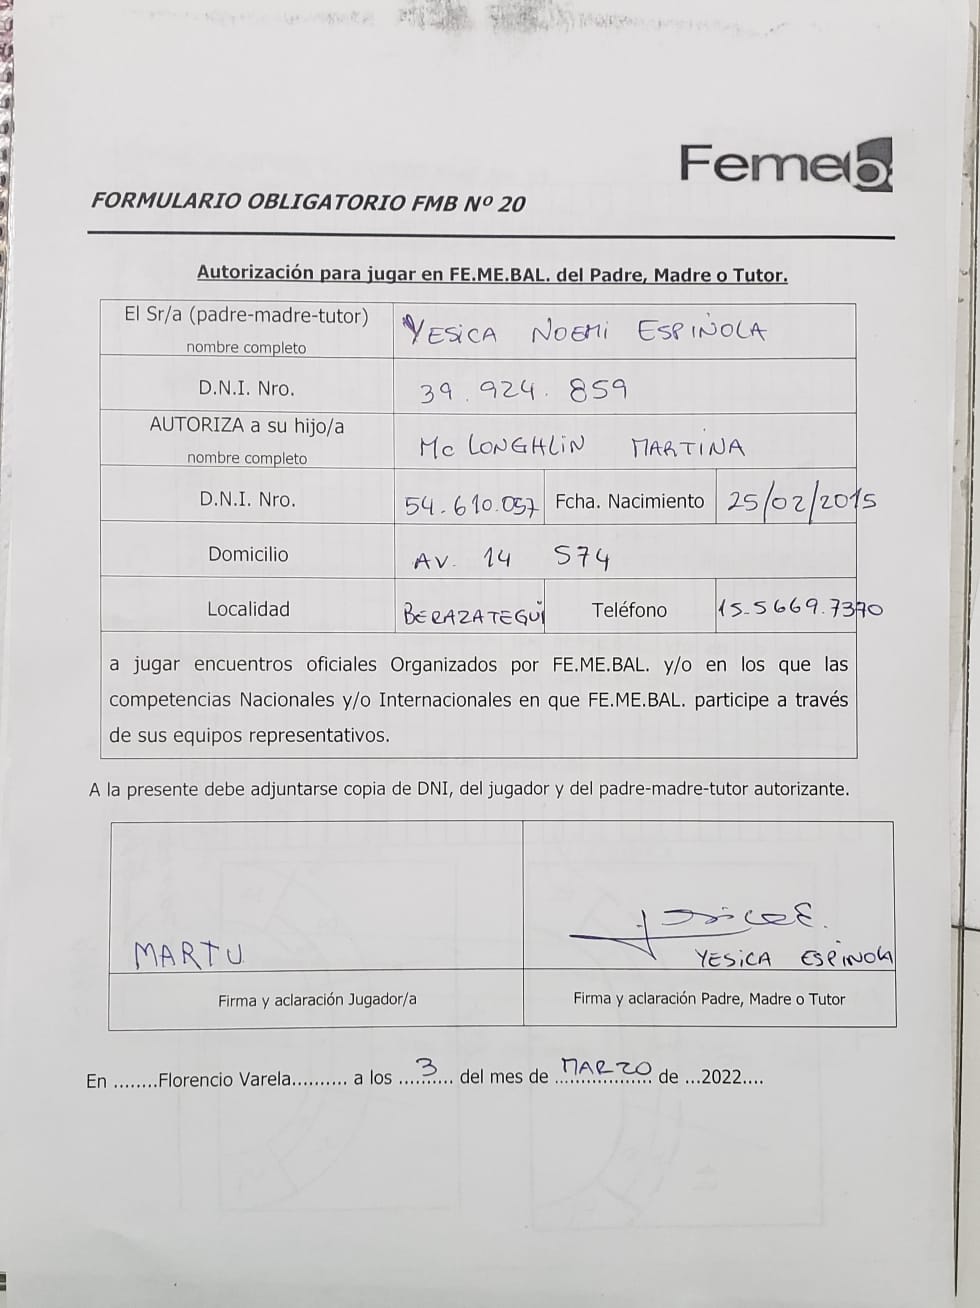 Femeb
FORMULARIO OBLIGATORIO FMB Nº 20
Autorización para jugar en FE.ME.BAL. del Padre, Madre o Tutor.
El Sr/a (padre-madre-tutor)
nombre completo
YESICA NOEMI ESPIÑOLA
D.N.I. Nro.
39.924.859
AUTORIZA a su hijo/a
nombre completo
Mc LONGHLIN MARTINA
D.N.I. Nro.
54.610.057
Fcha. Nacimiento
25/02/2015
Domicilio
AV. 14 574
Localidad
BERAZATEGUI
Teléfono
15-5669.7370
a jugar encuentros oficiales Organizados por FE.ME.BAL. y/o en los que las
competencias Nacionales y/o Internacionales en que FE.ME.BAL. participe a través
de sus equipos representativos.
A la presente debe adjuntarse copia de DNI, del jugador y del padre-madre-tutor autorizante.
MARTU
YESICA ESPIÑOLA
Firma y aclaración Jugador/a
Firma y aclaración Padre, Madre o Tutor
En ........Florencio Varela.......... a los ....3...... del mes de ...MARZO... de ...2022....